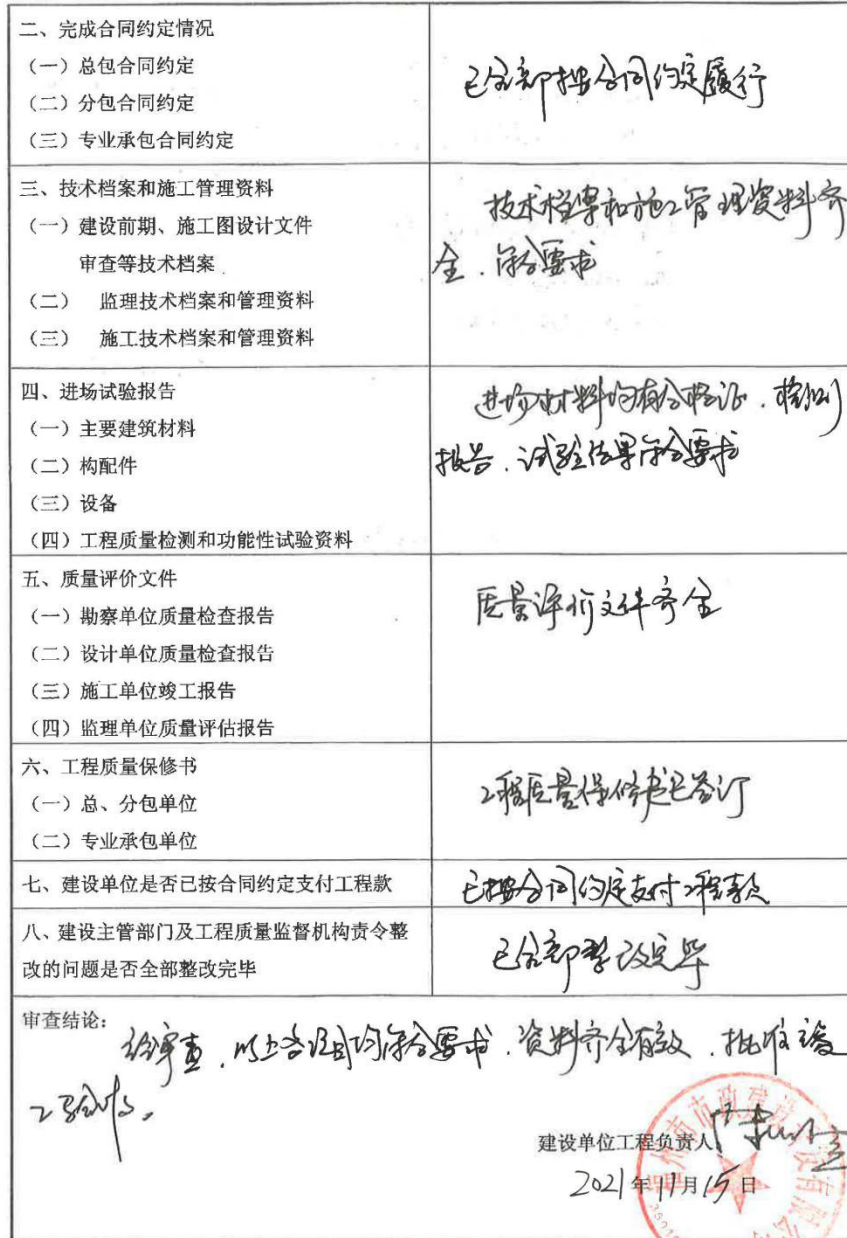 二、完成合同约定情况
（一）总包合同约定
（二）分包合同约定
（三）专业承包合同约定
已全部按合同约定履行
三、技术档案和施工管理资料
（一）建设前期、施工图设计文件
审查等技术档案
（二） 监理技术档案和管理资料
（三） 施工技术档案和管理资料
技术档案和施工管理资料齐
全．符合要求
四、进场试验报告
（一）主要建筑材料
（二）构配件
（三）设备
（四）工程质量检测和功能性试验资料
进场材料均有合格证．检测
报告．试验结果符合要求
五、质量评价文件
（一）勘察单位质量检查报告
（二）设计单位质量检查报告
（三）施工单位竣工报告
（四）监理单位质量评估报告
质量评价文件齐全
六、工程质量保修书
（一）总、分包单位
（二）专业承包单位
工程质量保修书已签订
七、建设单位是否已按合同约定支付工程款
已按合同约定支付工程款
八、建设主管部门及工程质量监督机构责令整
改的问题是否全部整改完毕
已全部整改完毕
审查结论：
经审查．以上各项目均符合要求．资料齐全有效．批准竣
工验收。
建设单位工程负责人
2021年11月15日
州市市政建设开发有限公